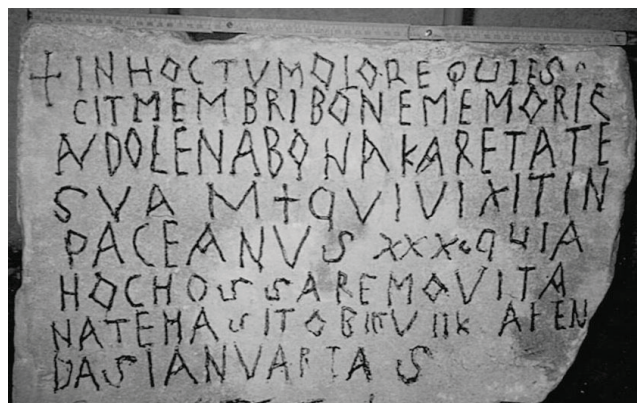 +INHOCTVMOLORE QUIES
CITMEMBRIBONEMEMORIE
ANDOLENABONAKARETATE
SVA M+QVIVIXITIN
PACEANVS XXXVQUIA
HOCHOSSAREMOVITA
NATEMASITOBIITVIIK AFEN
DASIANVARIAS